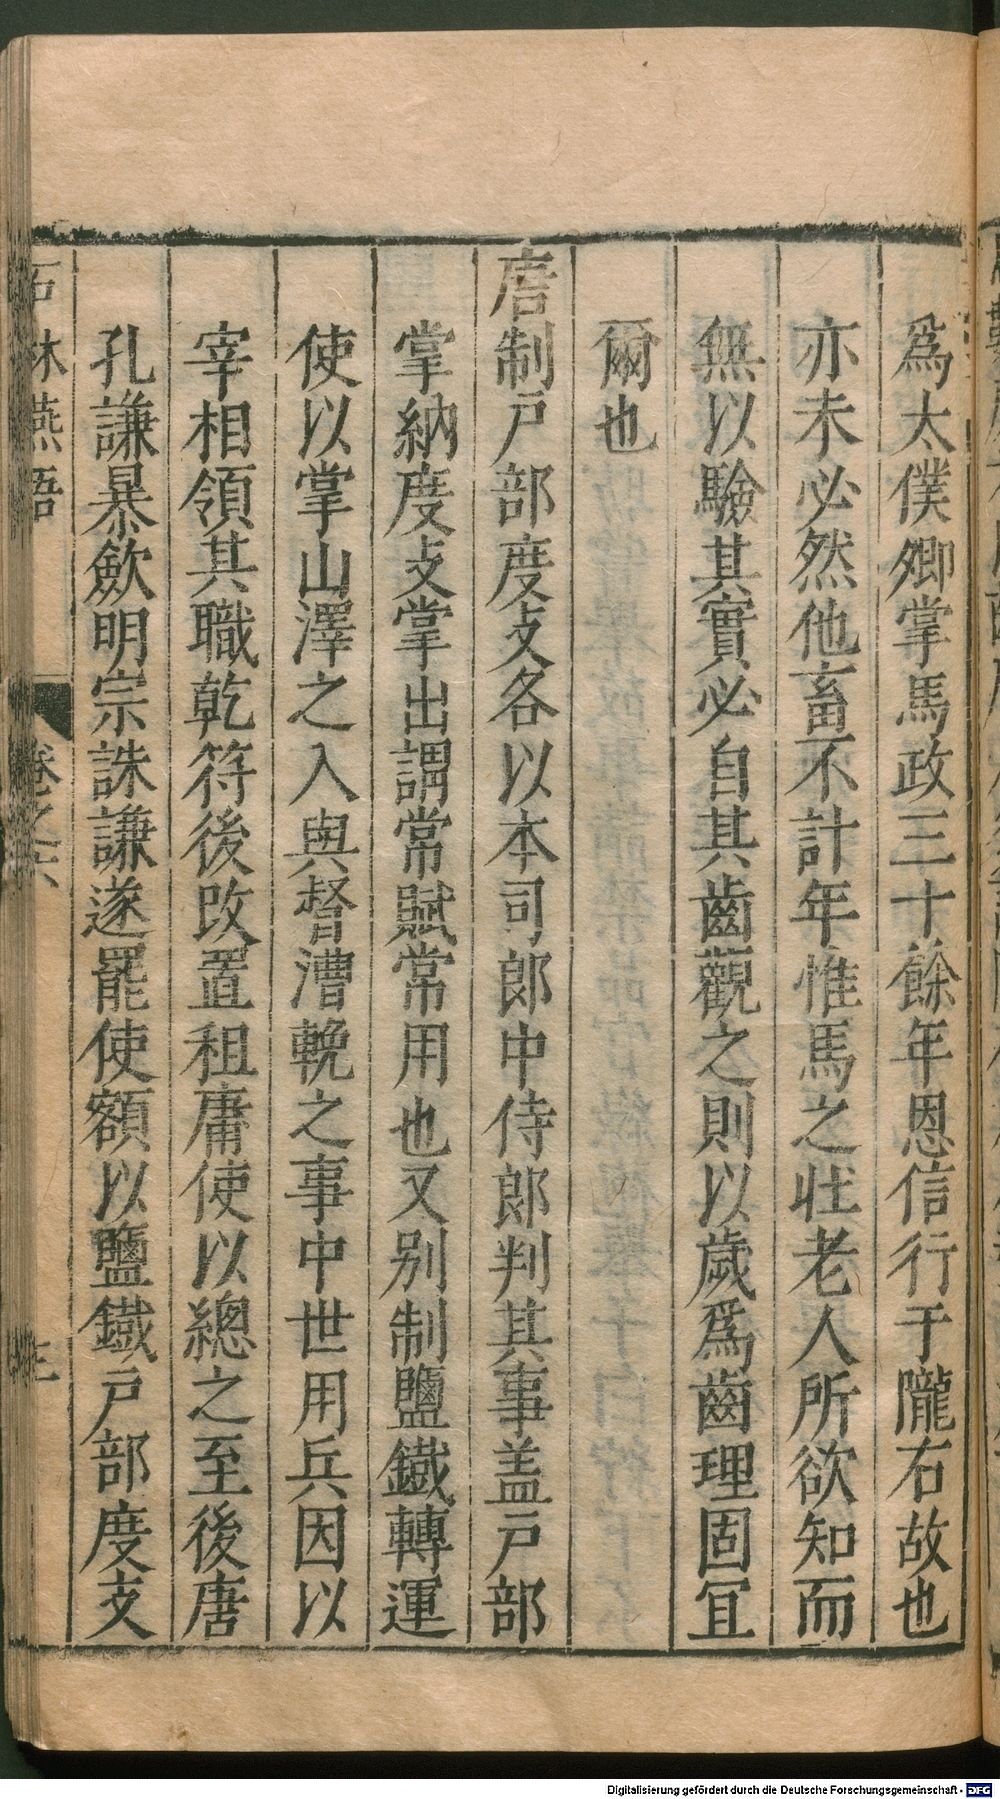 爲太僕卿掌馬政三十餘年恩信行于隴右故也
亦未必然他畜不計年惟馬之壯老人所欲知而
無以驗其實必自其齒觀之則以歲爲齒理固宜
爾也
唐制戸部度支各以本司郎中侍郎判其事盖戸部
掌納度支掌出謂常賦常用也又别制鹽鐵轉運
使以掌山澤之入與督漕輓之事中世用兵因以
宰相領其職乾符後改置租庸使以總之至後唐
孔謙暴歛明宗誅謙遂罷使額以鹽鐵戸部度支
石林燕語 卷之六
Digitalisierung gefördert durch die Deutsche Forschungsgemeinschaft - DFG